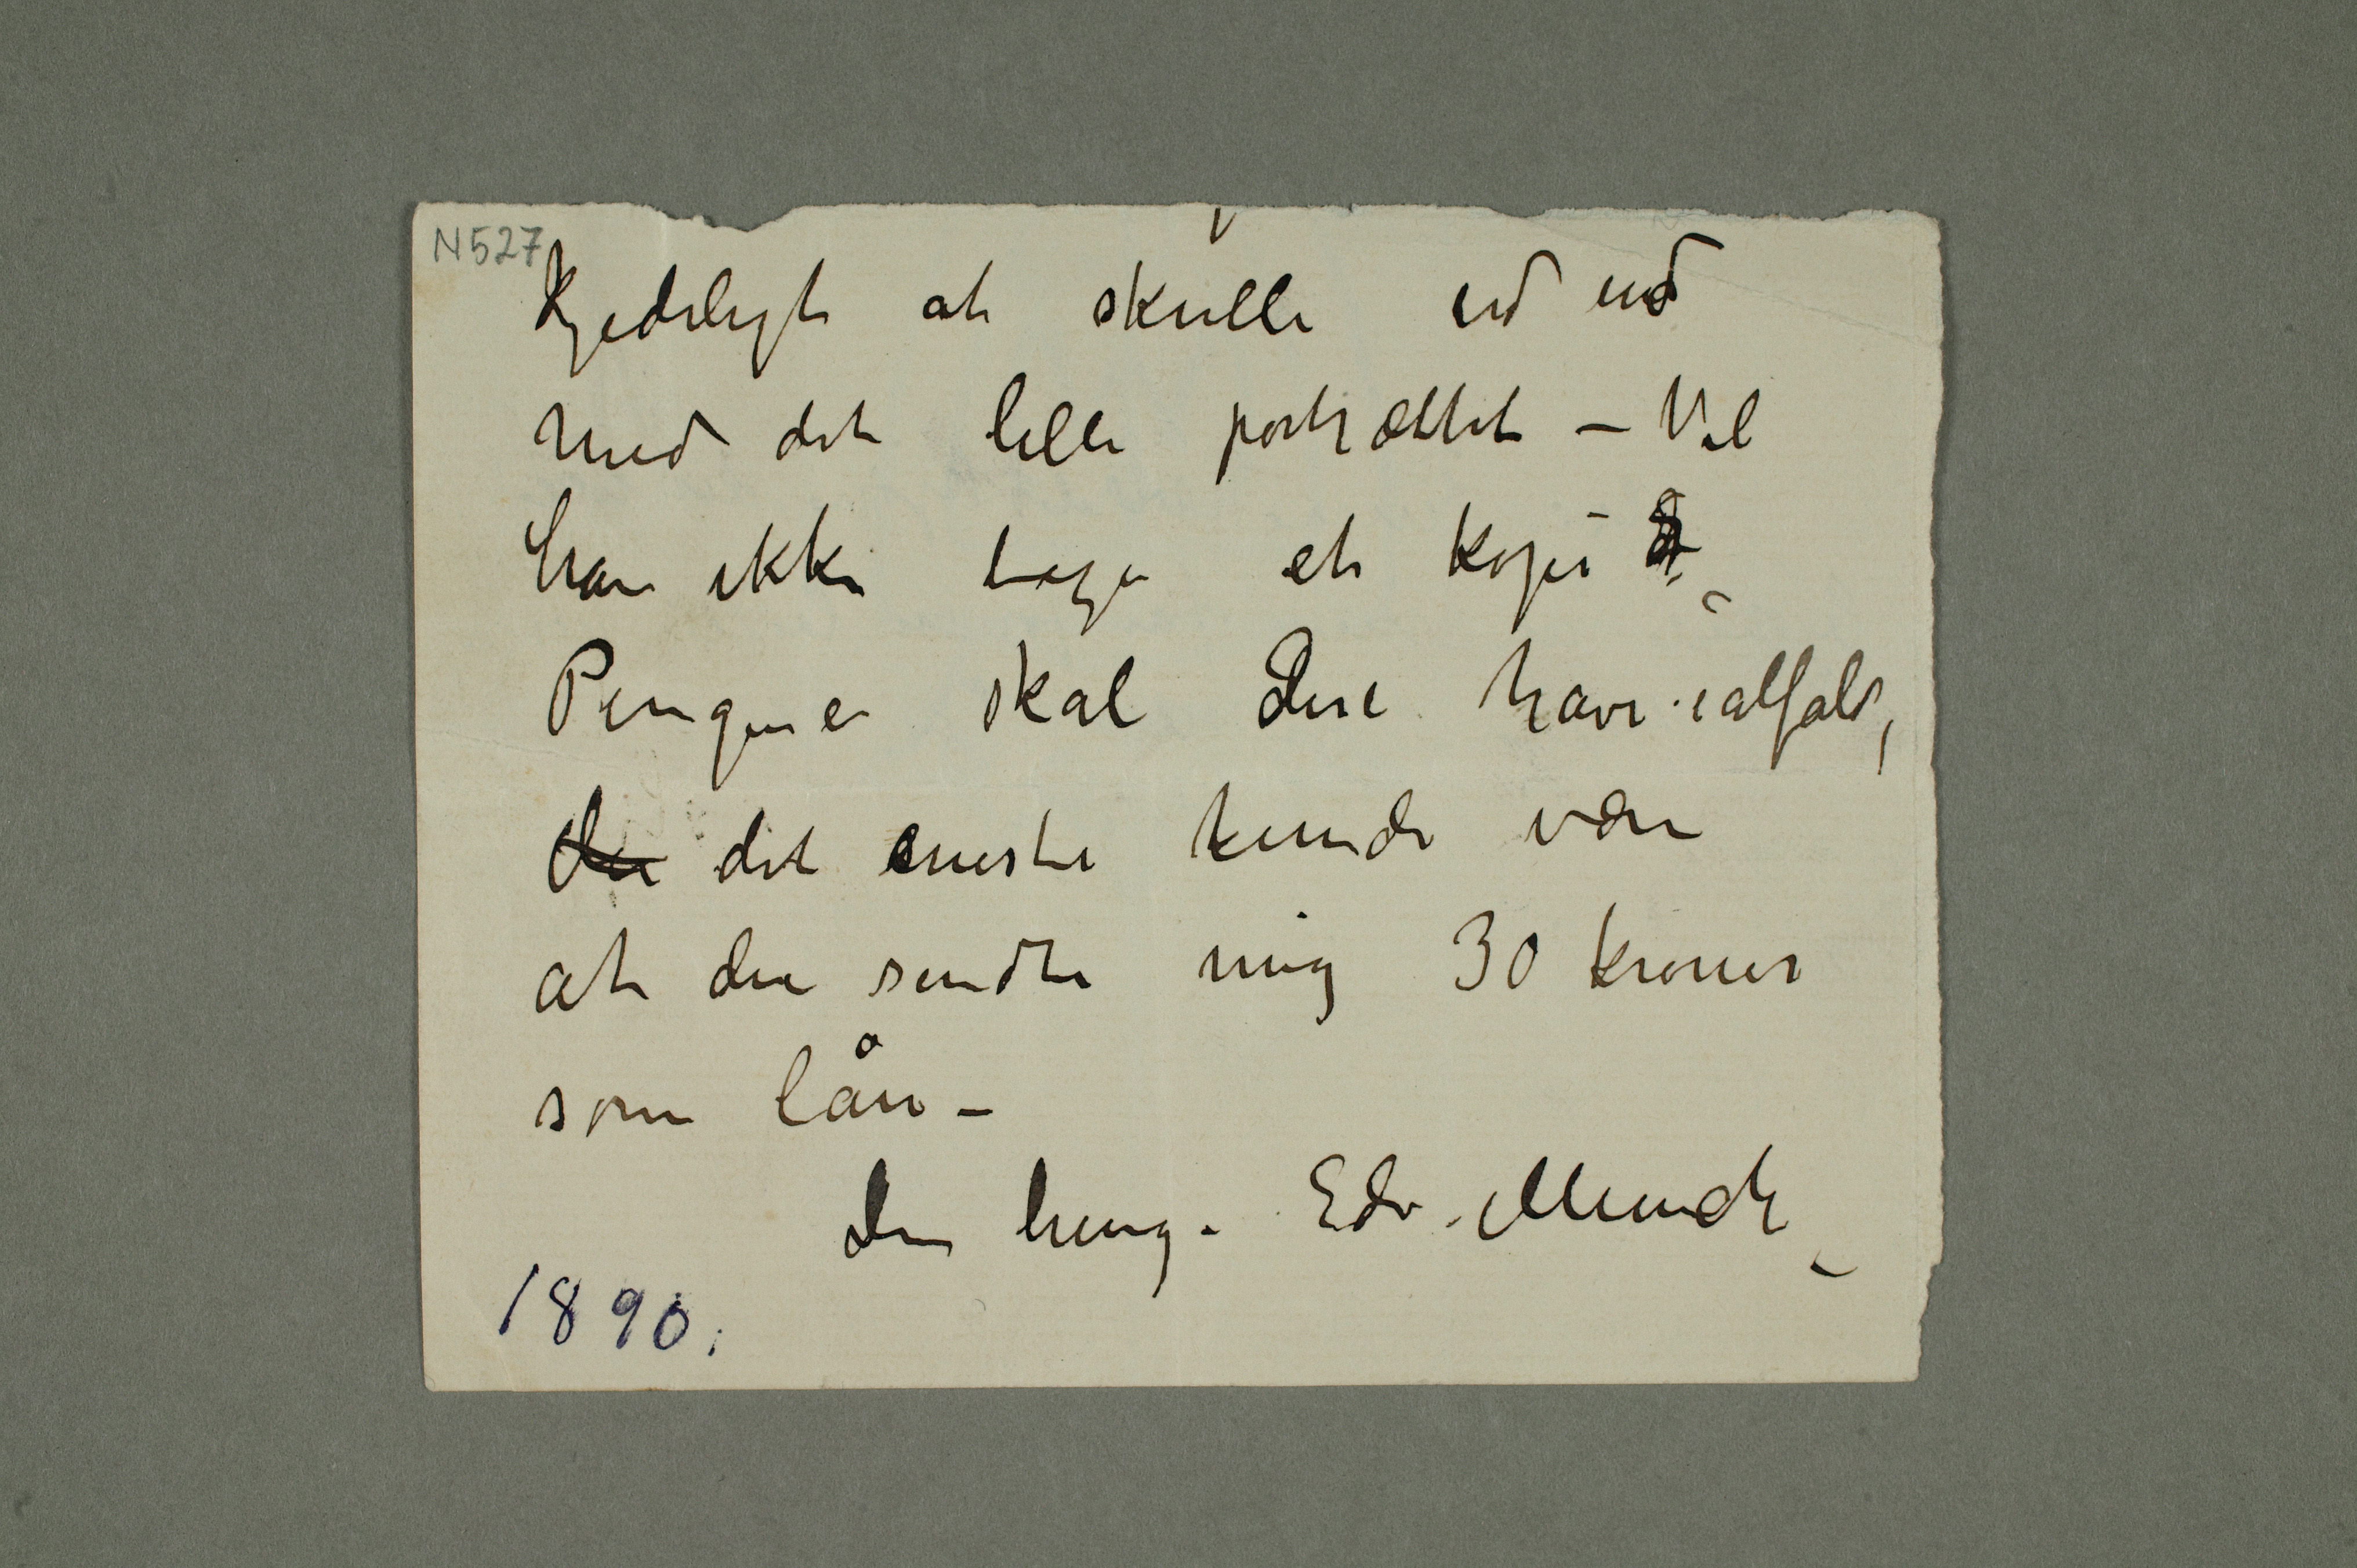 N527
Kjedeligt at skulle ud ud
med det lille portrættet – Vil
han ikke tage et kopi –
Pengene skal dere have ialfald,
du det eneste kunde være
at du sendte mig 30 kroner
som lån –
din heng. Edv. Munch –
1890.